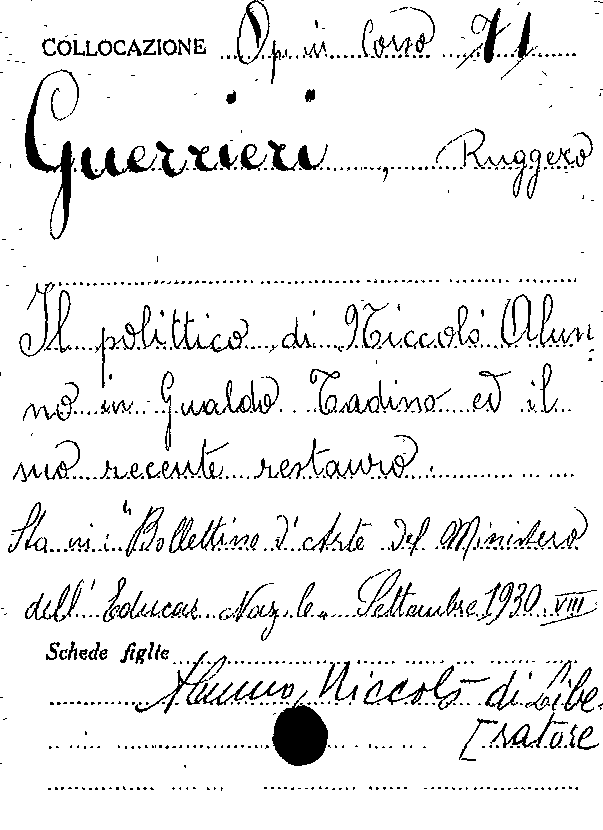 COLLOCAZIONE Op in Corso 71
Guerrieri, Ruggero
Il polittico di Niccolò Alun-
no in Gualdo Tadino ed il
suo recente restauro.
Sta in: "Bollettino d'Arte del Ministero
dell' Educaz. Naz.le. Settembre 1930 VIII
Schede figlie
Alunno, Niccolò di Libe-
[ratore